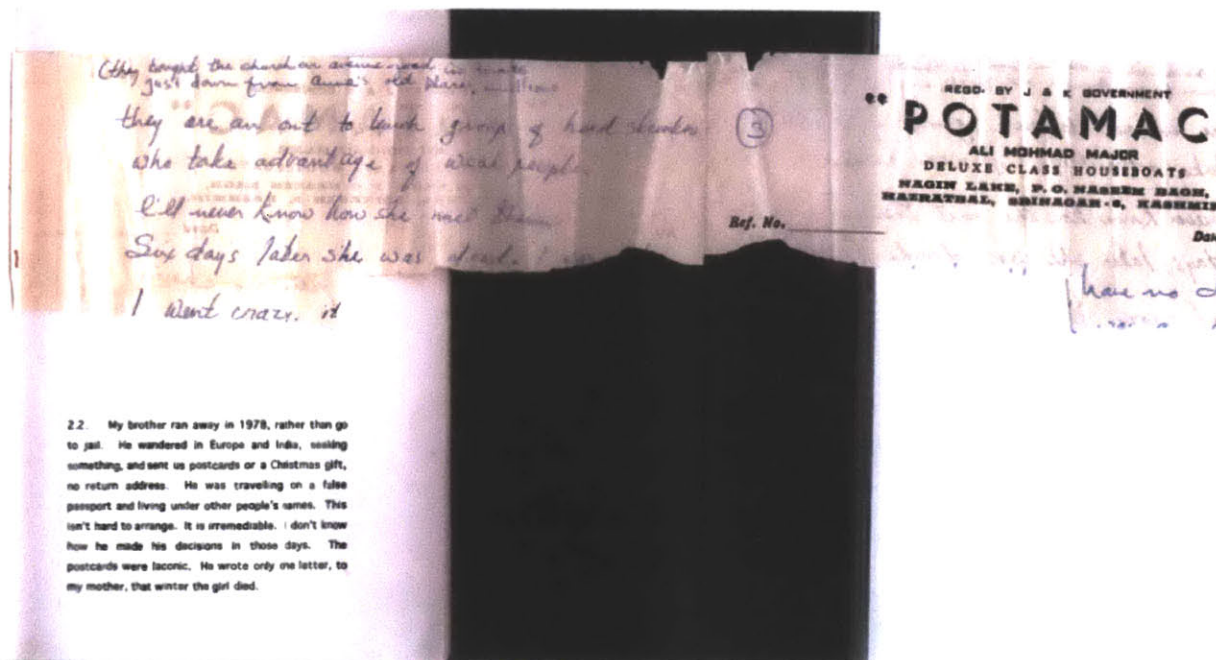 (they bought the church on avenue road in
just down from Anna's old place,
they are an out to lunch group of hard
who take advantage of weak people.
I'll never know how she met them.
Six days later she was dead. I
I went crazy. it
3
REGD. BY J & K GOVERNMENT
"POTAMAC
ALI MOHMAD MAJOR
DELUXE CLASS HOUSEBOATS
NAGIN LAKE, P. O. NASEEM BAGH,
HAZRATBAL, SRINAGAR-6, KASHMIR
Ref. No.
Dat
have no
2.2. My brother ran away in 1978, rather than go
to jail. He wandered in Europe and India, seeking
something, and sent us postcards or a Christmas gift,
no return address. He was travelling on a false
passport and living under other people's names. This
isn't hard to arrange. It is irremediable. I don't know
how he made his decisions in those days. The
postcards were laconic. He wrote only one letter, to
my mother, that winter the girl died.